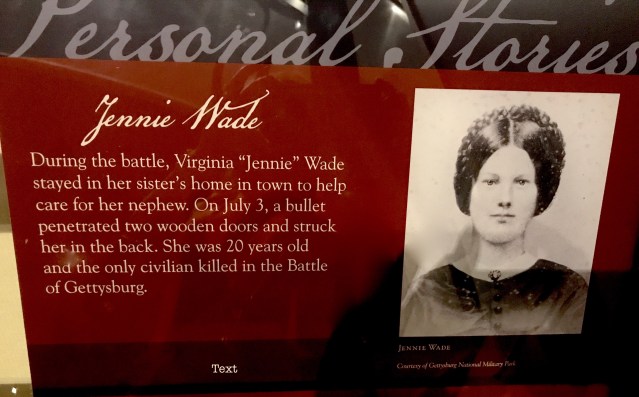 Personal Stories
Jennie Wade
During the battle, Virginia “Jennie” Wade
stayed in her sister’s home in town to help
care for her nephew. On July 3, a bullet
penetrated two wooden doors and struck
her in the back. She was 20 years old
and the only civilian killed in the Battle
of Gettysburg.
Text
JENNIE WADE
Courtesy of Gettysburg National Military Park